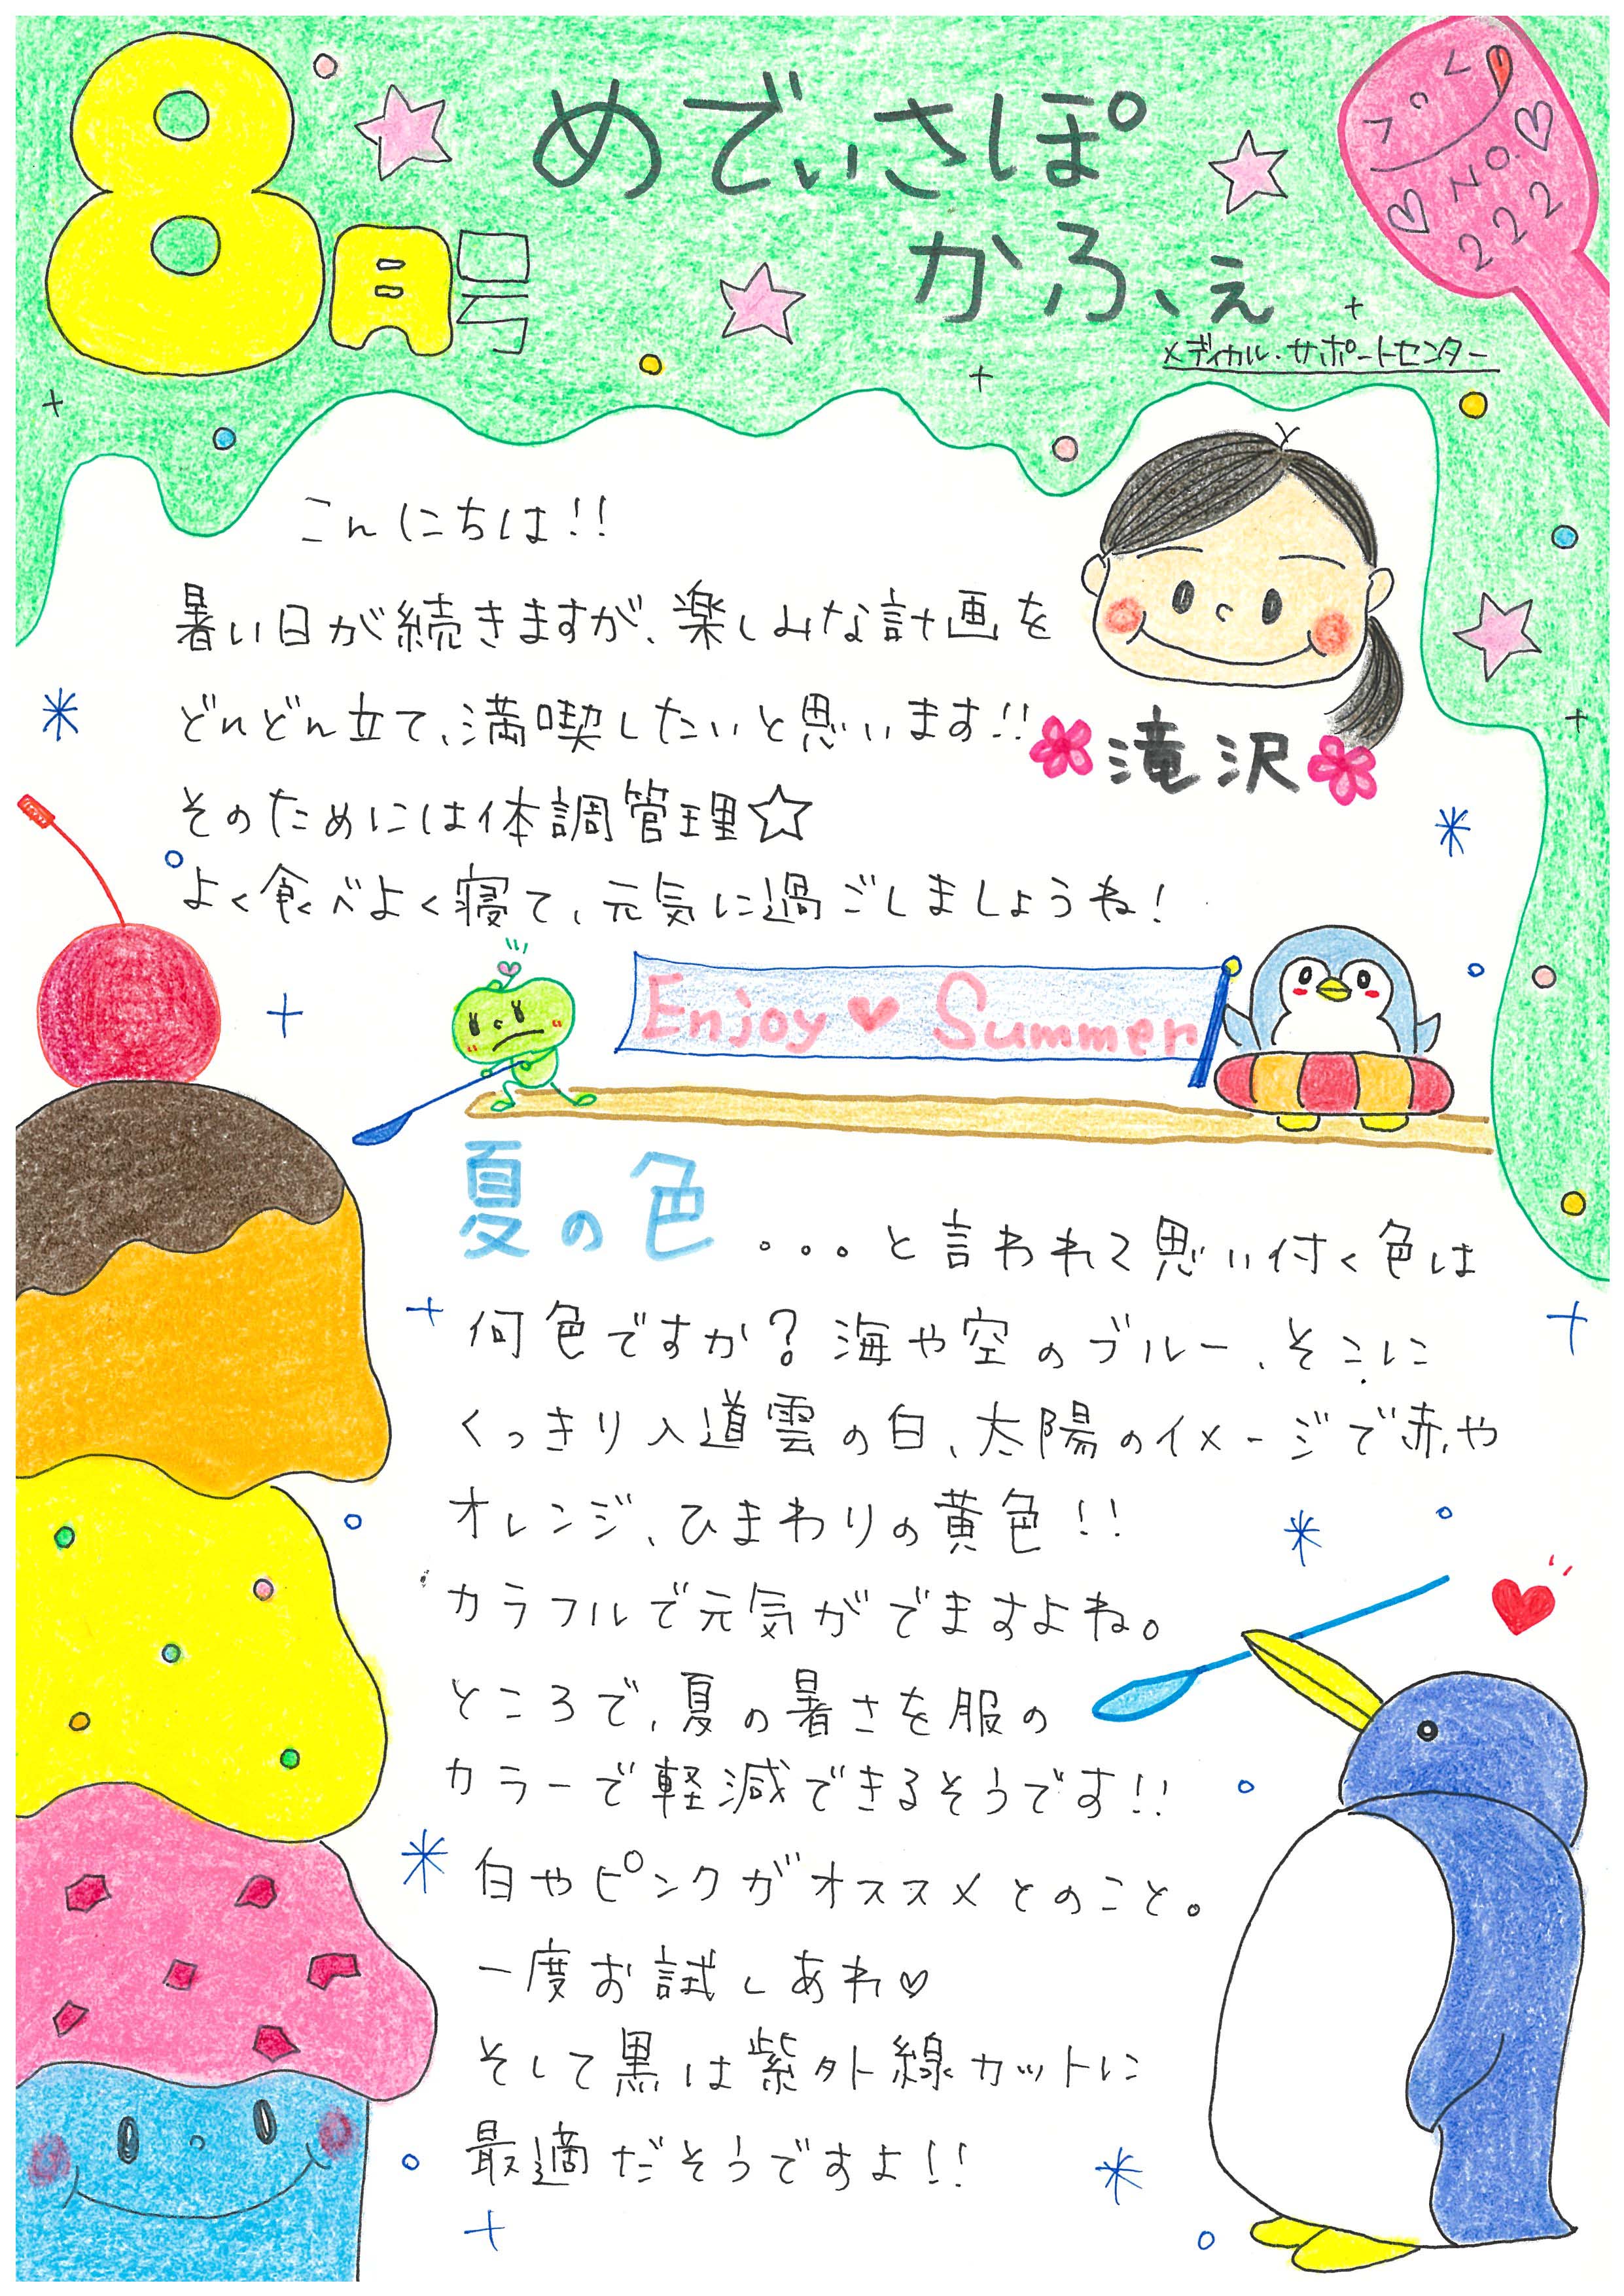 8月号
めでぃさぽ
かふぇ
NO.
222
メディカル・サポートセンター
こんにちは!!
暑い日が続きますが、楽しみな計画を
どんどん立て、満喫したいと思います!!
滝沢
そのためには体調管理☆
よく食べよく寝て、元気に過ごしましょうね!
Enjoy ♥ Summer
夏の色...と言われて思い付く色は
何色ですか?海や空のブルー、そこに
くっきり入道雲の白、太陽のイメージで赤や
オレンジ、ひまわりの黄色!!
カラフルで元気がでますよね。
ところで、夏の暑さを服の
カラーで軽減できるそうです!!
白やピンクがオススメとのこと。
一度お試しあれ♡
そして黒は紫外線カットに
最適だそうですよ!!